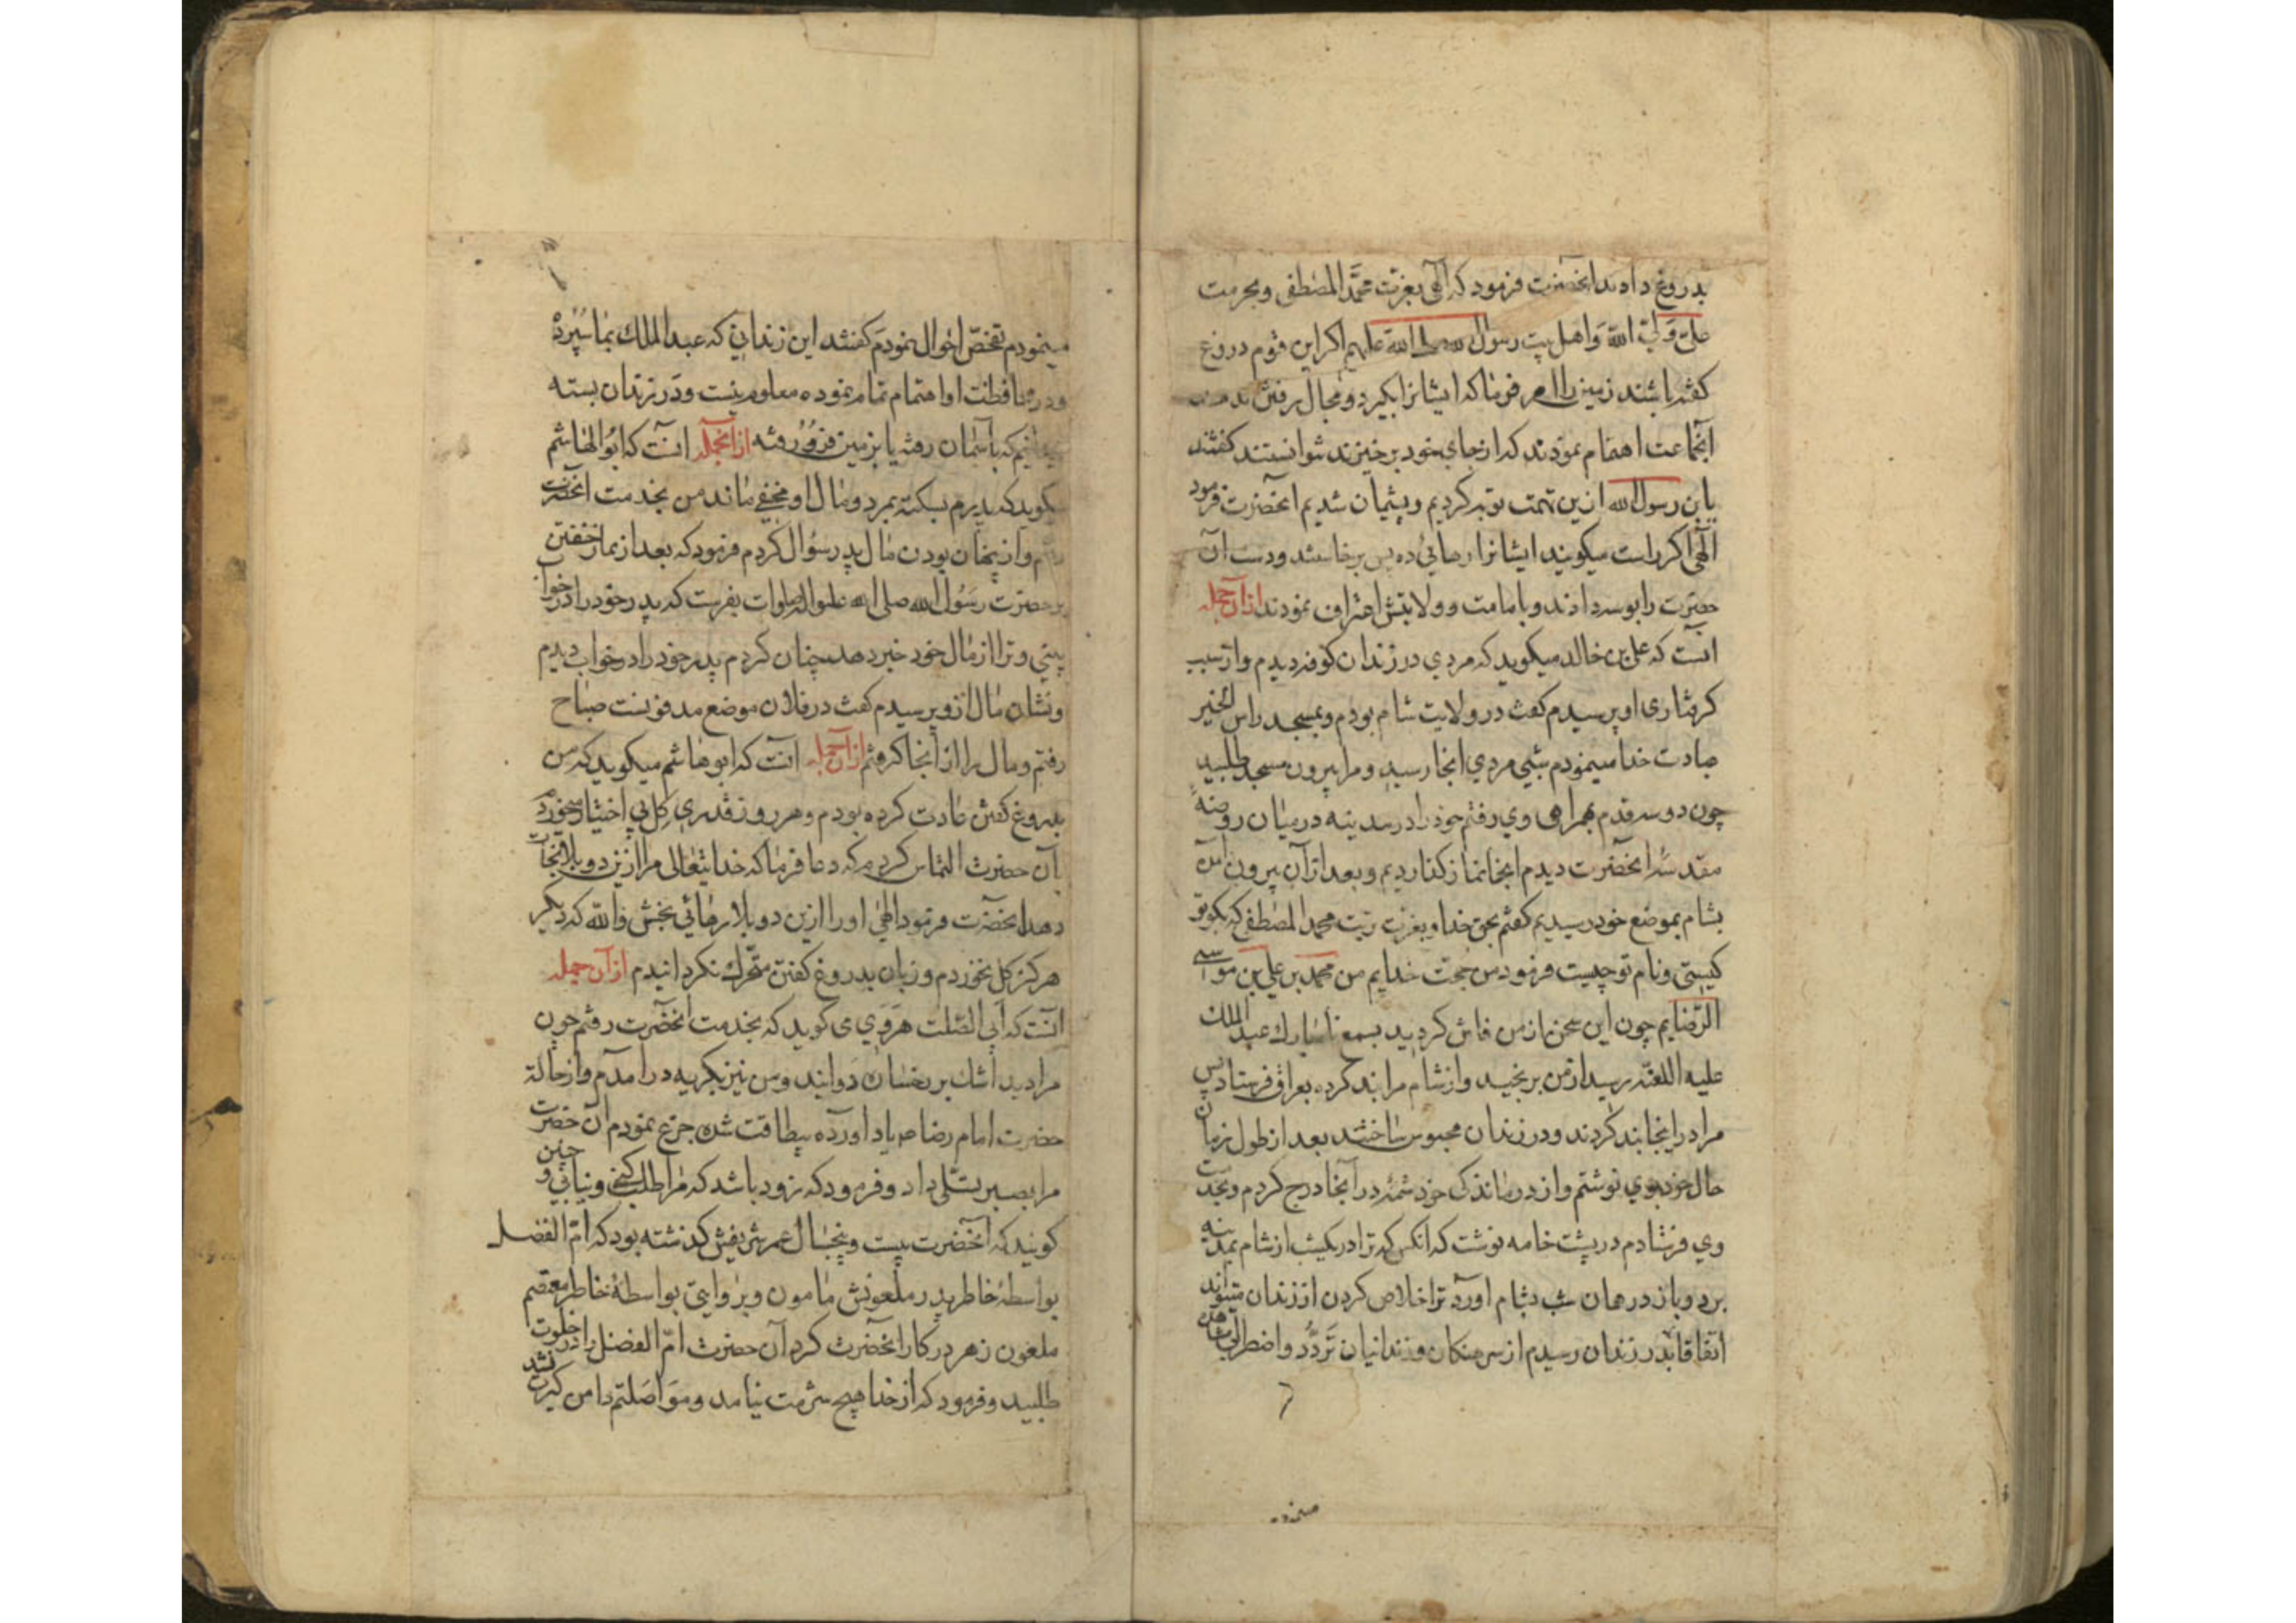 بدروغ دادند انحضرت فرمود که الهی بعزت محمد المصطفی و بحرمت
علی ولی الله و اهل بیت رسول الله صلی الله علیهم اکر این قوم دروغ
کفته باشند زمین را امر فرما که ایشانرا بکیرد و مجال رفتن
انجماعت اهتمام نمودند که از جای خود برخیزند نتوانستند کفتند
یا بن رسول الله ازین تهمت توبه کردیم و پشیمان شدیم انحضرت فرمود
الهی اکر راست میکویند ایشانرا رهائی ده پس برخاستند و دست آن
حضرت را بوسه دادند و بامامت و ولایتش اعتراف نمودند از آن جمله
انست که علی بن خالد میکوید که مردی در زندان کوفه دیدم و از سبب
کرفتاری او پرسیدم کفت در ولایت شام بودم و بمسجد راس الخیر
عبادت خدا مینمودم شبی مردی انجا رسید و مرا بیرون مسجد طلبید
چون دو سه قدم بهمراهی وی رفتم خود را در مدینه در میان روضهٔ
مقدسهٔ انحضرت دیدم انجا نماز کذاردیم و بعد از آن بیرون آمده
بشام بموضع خود رسیدیم کفتم بحق خدا و بعزت تربت محمد المصطفی که بکو تو
کیستی و نام تو چیست فرمود من حجت خدایم من محمد بن علی بن موسی
الرضایم چون این سخن از من فاش کردید بسمع نامبارك عبد الملك
علیه اللعنه رسید از من برنجید و از شام مرا بند کرده بعراق فرستاد پس
مرا در اینجا بند کردند و در زندان محبوس ساختند بعد از طول زمان
حال خود بوی نوشتم و از درماندکی خود شمهٔ در آنجا درج کردم و بخدمت
وی فرستادم در پشت خامه نوشت که انکس که ترا در یکشب از شام بمدینه
برد و باز در همان شب بشام اورد ترا خلاص کردن از زندان میتواند
اتفاقا بدر زندان رسیدم از سرهنکان و زندانیان تردد و اضطرابی مشاهده
مینمودم
مینمودم تفحص احوال نمودم کفتند این زندانی که عبد الملك بما سپرده
و در محافظت او اهتمام تمام نموده معلوم نیست و در زندان بسته
نمیدانیم که باسمان رفته یا بزمین فرو رفته از آنجمله انست که ابو الهاشم
میکوید که پدرم بسکته بمرد و مال او مخفی ماند من بخدمت انحضرت
رفتم و از پنهان بودن مال پدر سؤال کردم فرمود که بعد از نماز خفتن
بر حضرت رسول الله صلی الله علیه و اله صلوات بفرست که پدر خود را در خواب
بینی و ترا از مال خود خبر دهد چنان کردم پدر خود را در خواب دیدم
و نشان مال ازو پرسیدم کفت در فلان موضع مدفونست صباح
رفتم و مال را از آنجا کرفتم از آن جمله انست که ابو هاشم میکوید که من
بدروغ کفتن عادت کرده بودم و هر روز قدری کل بی اختیار میخوردم
بآن حضرت التماس کردم که دعا فرما که خدایتعالی مرا ازین دو بلا نجات
دهد انحضرت فرمود الهی او را ازین دو بلا رهائی بخش فالله که دیکر
هرکز کل نخوردم و زبان بدروغ کفتن متحرك نکردانیدم از آن جمله
انست که ابی الصلت هروی می کوید که بخدمت انحضرت رفتم چون
مرا دید اشك بر رخسار دوانید و من نیز بکریه در امدم و از حالت
حضرت امام رضا ع یاد آورده بیطاقت شده جزع نمودم آن حضرت
مرا بصبر تسلی داد و فرمود که زود باشد که مرا طلب کنی و نیابی و چنین
کویند که انحضرت بیست و پنجسال عمر شریفش کذشته بود که ام الفضل
بواسطهٔ خاطر پدر ملعونش مامون و بروایتی بواسطهٔ خاطر معتصم
ملعون زهر در کار انحضرت کرد آن حضرت ام الفضل را در خلوت
طلبید و فرمود که از خدا هیچ شرمت نیامد و مواصلتم دامن کیرت نشد